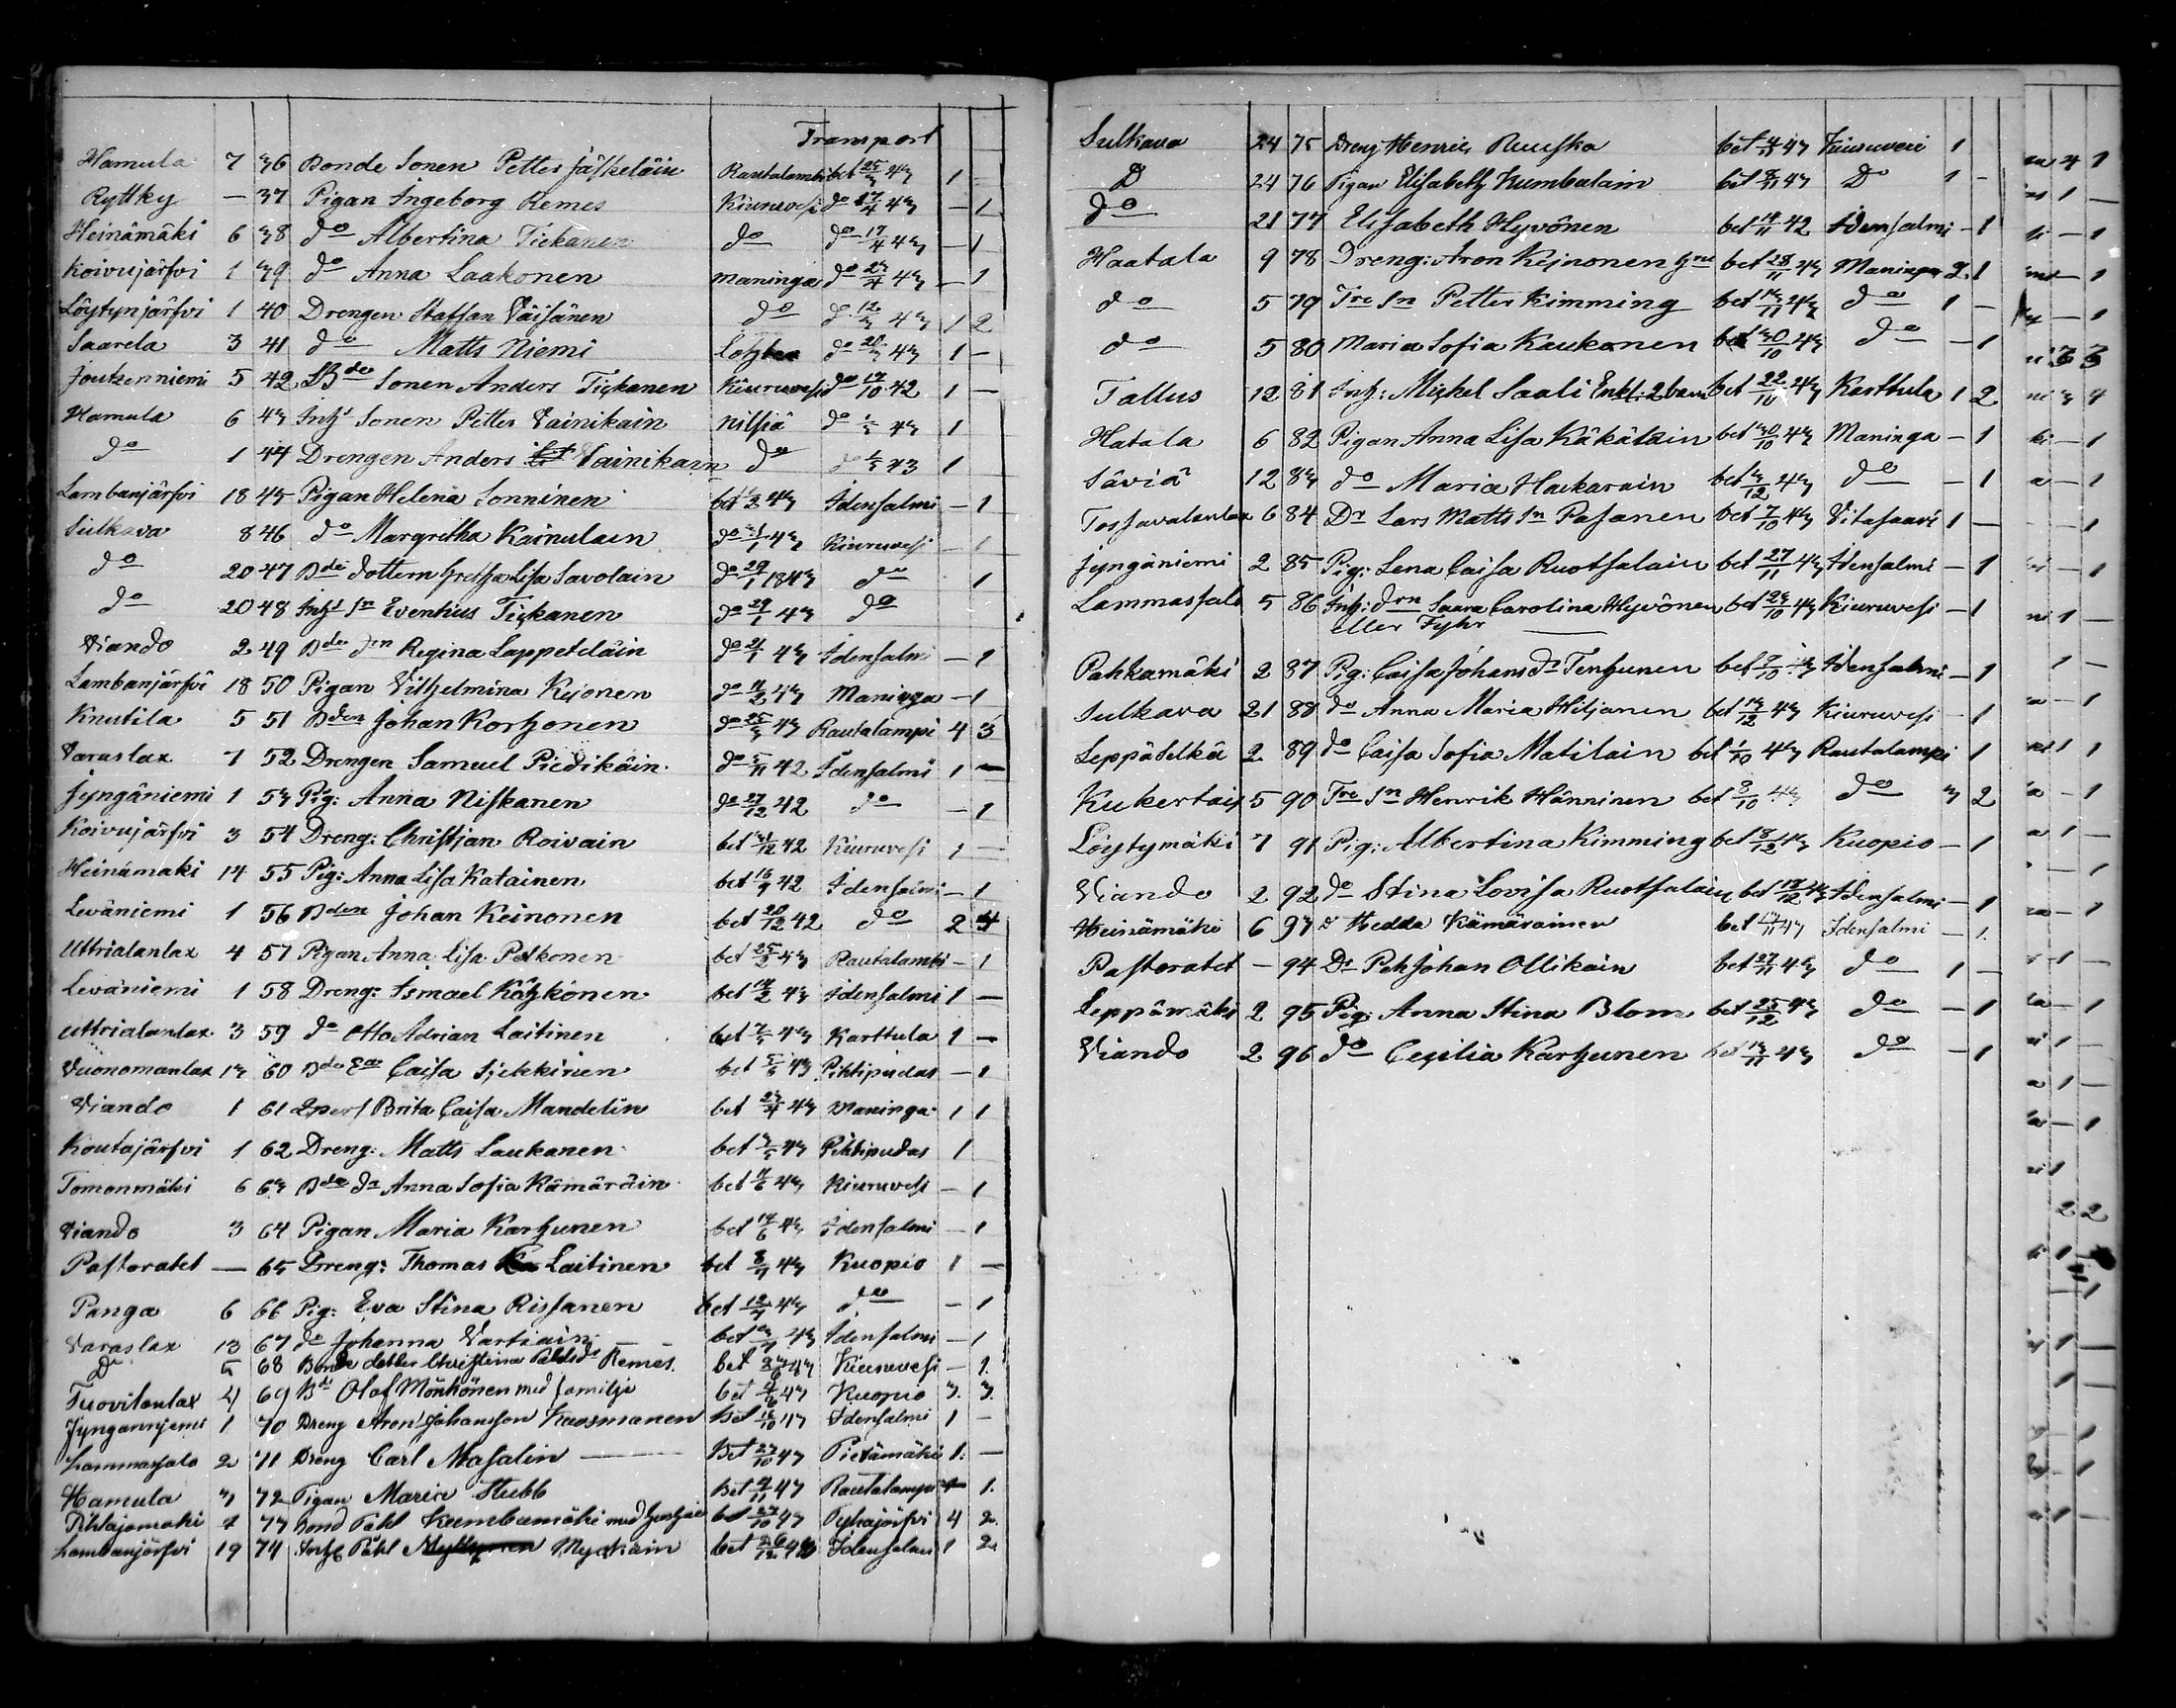 Transport
Hamula 7 36 Bonde Sonen Petter Jäskeläin Rautalambi bet 25/3 43 1
Ryttky — 37 Pigan Ingeborg Remes Kiuruvesi do 17/4 43 — 1
Heinämäki 6 38 do Albertina Tickanen do do 17/4 43 — 1
Koivujärfvi 1 39 do Anna Laakonen Maninga do 23/4 43 — 1
Löytynjärfvi 1 40 Drengen Staffan Väisänen do do 12/3 43 1 2
Saarela 3 41 do Matts Niemi do 20/3 43 1 —
Joutzenniemi 5 42 Bde Sonen Anders Tickanen Kiuruvesi do 17/10 42 1 —
Hamula 6 43 Inhs Sonen Petter Vainikain Nilsiä do 43 1
do 1 44 Drengen Anders Vainikain do 43 1
Lambanjärfvi 18 45 Pigan Helena Sonninen bet 43 Idensalmi — 1
Sulkava 8 46 do Margretha Kainulain do 43 Kiuruvesi — 1
do 20 47 Bde dottern Gretha Lisa Savolain do 29/1 1843 do 1
do 20 48 Inhs Sn Eventius Tickanen do 29/1 43 do
Viando 2 49 Bde drn Regina Lappeteläin do 21/1 43 Idensalmi — 1
Lambanjärfvi 18 50 Pigan Vilhelmina Kejonen do 43 Maninga — 1
Knutila 5 51 Bden Johan Korhonen do 25/3 43 Rautalampi 4 3
Varaslax 7 52 Drengen Samuel Piedikäin do 5/11 42 Idensalmi 1 —
Jyngäniemi 1 53 Pig: Anna Niskanen do 27/12 42 do — 1
Koivujärfvi 3 54 Dreng: Christjan Roivain bet 31/12 42 Kiuruvesi 1 —
Heinämäki 14 55 Pig: Anna Lisa Katainen bet 16/9 42 Idensalmi — 1
Leväniemi 1 56 Bden Johan Keinonen bet 20/12 42 do 2 4
Uttrialanlax 4 57 Pigan Anna Lisa Pelkonen bet 25/2 43 Rautalambi — 1
Leväniemi 1 58 Dreng: Ismael Kähkönen bet 43 Idensalmi 1 —
Uttrialanlax 3 59 do Otto Adrian Laitinen bet 43 Karttula 1 —
Vuonomanlax 13 60 Caisa Sickkinen bet 43 Pihtipudas — 1
Viando 1 61 2 pers Brita Caisa Mandelin bet 23/4 43 Maninga 1 1
Koutajärfvi 1 62 Dreng: Matts Laukanen bet 43 Pihtipudas 1
Tomonmäki 6 63 Bde dr Anna Sofia Kämäräin bet 43 Kiuruvesi — 1
Viando 3 64 Pigan Maria Karhunen bet 17/6 43 Idensalmi — 1
Pastoratet — 65 Dreng: Thomas Laitinen bet 43 Kuopio 1 —
Panga 6 66 Pig: Eva Stina Rissanen bet 12/7 43 do — 1
Varaslax 13 67 do Johanna Vartiain bet 43 Idensalmi — 1
Do 5 68 Bonde dotter Christina Påhlsdr Remes bet 43 Kiuruvesi — 1
Tuovilanlax 4 69 Bd Olof Mönkönen med familje bet 43 Kuopio 3. 3.
Jynganniemi 1 70 Dreng Aron Johansson Kaasmanen Bet 16/10 43 Idensalmi 1 —
Lammassalo 2 71 Dreng Carl Masalin Bet 27/10 43 Pielämäki 1. —
Hamula 3 72 Pigan Maria Stubb Bet 43 Rautalampi 1.
Pihlajamäki 73 Bond Påhl Kumbumäki bet 27/10 43 Pyhäjärfvi 4 2.
Lambanjärfvi 19 74 Inhs Påhl Myckäin bet 26/12 Idensalmi 1 2
Sulkava 24 75 Dreng Henric Ruuska bet 43 Kiuruvesi 1
Do 24 76 Pigan Elisabeth Kumbulain bet 43 Do 1 —
do 21 77 Elisabeth Hyvönen bet 14/11 42 Idensalmi — 1
Haatala 9 78 Dreng: Aron Kejnonen bet 28/11 43 Maninga 2. 1
do 5 79 Tre Sn Petter Kimming bet 43 do 1 —
do 5 80 Maria Sofia Kaukanen bet 30/10 43 do — 1
Tallus 12 81 Inh: Michel Saali Enkl: 2 barn bet 22/10 43 Karttula 1 2
Hatala 6 82 Pigan Anna Lisa Käkäläin bet 30/10 43 Maninga — 1
Säviä 12 83 do Maria Hackarain bet 43 do — 1
Tossavalanlax 6 84 Dr Lars Matts Sn Pasanen bet 7/10 43 Vitasaari 1 —
Jyngäniemi 2 85 Pig: Lena Caisa Ruotsalain bet 27/11 43 Idensalmi — 1
Lammassalo 5 86 Inh: drn Saara Carolina Hyvönen bet 23/10 43 Kiuruvesi — 1
eller Fyhr
Pahkamäki 2 87 Pig: Caisa Johans dr Tenhunen bet Idensalmi — 1
Sulkava 21 88 do Anna Maria Hiljanen bet 13/12 43 Kiuruvesi — 1
Leppäselkä 2 89 do Caisa Sofia Matilain bet 1/10 43 Rautalampi 1
Kukertais 5 90 Tre Sn Henrik Hänninen bet 43 do 3 2
Löytymäki 7 91 Pig: Albertina Kimming bet 8/12 43 Kuopio — 1
Viando 2 92 do Stina Lovisa Ruotsalain bet 43 Idensalmi — 1
Heinämäki 6 93 do Hedda Kämäräinen bet 43 Idensalmi — 1.
Pastoratet — 94 Dr Pehr Johan Ollikäin bet 27/11 43 do 1 —
Leppämäki 2 95 Pig: Anna Stina Blom bet 25/12 43 do — 1
Viando 2 96 do Cecilia Karhunen bet 13/11 43 do — 1